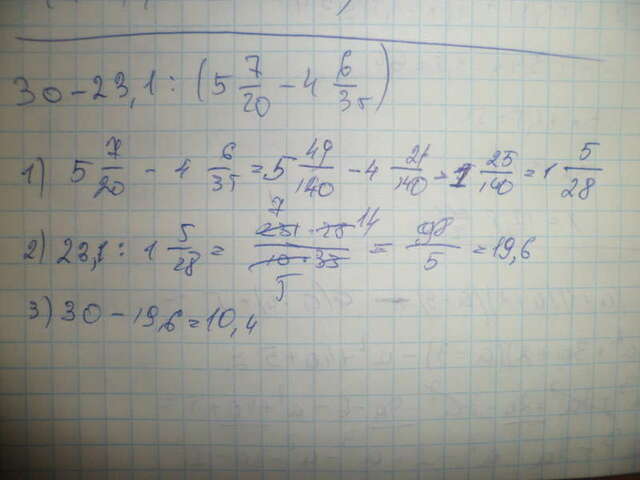 30-23,1:(5 7/20 - 4 6/35)
1) 5 7/20 - 4 6/35 = 5 49/140 - 4 24/140 = 1 25/140 = 1 5/28
2) 23,1 : 1 5/28 = 7 231 · 28 14 / 10 · 33 5 = 98/5 = 19,6
3) 30 - 19,6 = 10,4